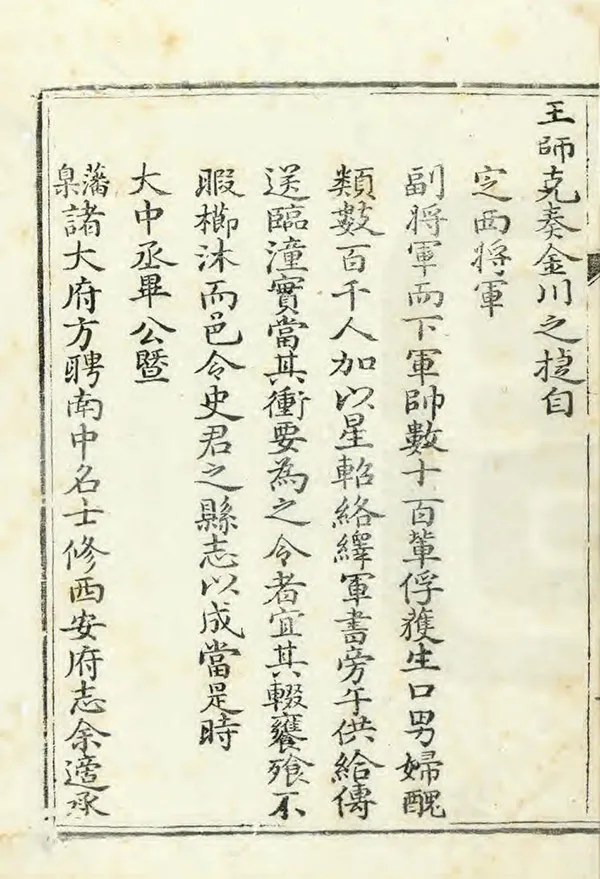 王師克奏金川之捷自
定西將軍
副將軍而下軍帥數十百輩俘獲生口男婦醜
類數百千人加以星軺絡繹軍書旁午供給傳
送臨潼實當其衝要為之令者宜其輟饔飱不
暇櫛沐而邑令史君之縣志以成當是時
大中丞畢公暨
藩臬諸大府方聘南中名士修西安府志余適承